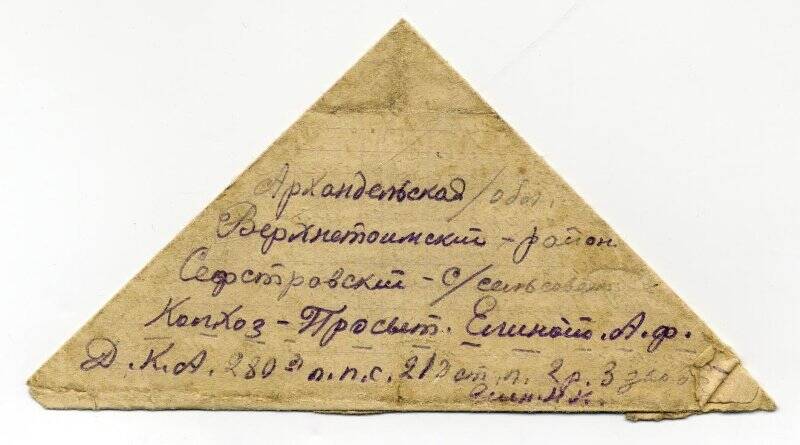 Архандельская/обл.
Верхнетоимский - район
Сефтровский - с/сельсовет
Колхоз - Просвет. Елиной. А. Ф.
Д. К. А. 280 п.п.с. 213 ст. п. 2 р. 3